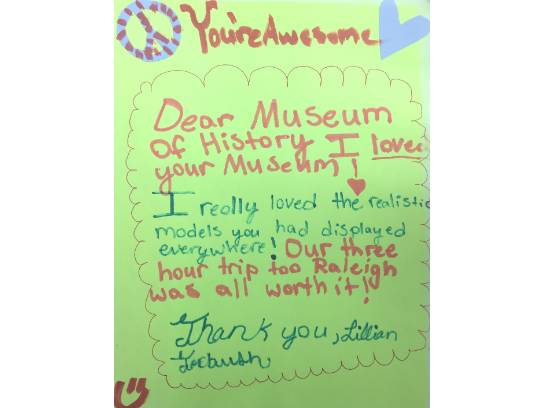 You're Awesome
Dear Museum
of History I loved
your Museum!
I really loved the realistic
models you had displayed
everywhere! Our three
hour trip too Raleigh
was all worth it!
Thank you, Lillian